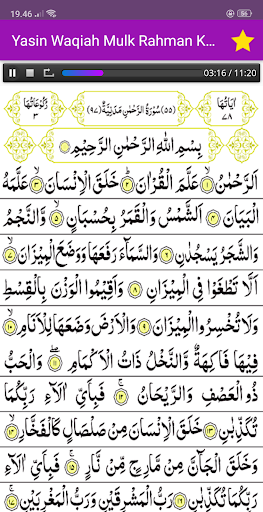 19.46
Yasin Waqiah Mulk Rahman K...
03:16 / 11:20
اٰیَاتُهَا ٧٨ (٥٥) سُوْرَةُ الرَّحْمٰنِ مَدَنِيَّةٌ (٩٧) رُكُوْعَاتُهَا ٣
بِسْمِ اللّٰهِ الرَّحْمٰنِ الرَّحِيْمِ
اَلرَّحْمٰنُ ۙ ١ عَلَّمَ الْقُرْاٰنَ ؕ ٢ خَلَقَ الْاِنْسَانَ ۙ ٣ عَلَّمَهُ
الْبَيَانَ ٤ اَلشَّمْسُ وَالْقَمَرُ بِحُسْبَانٍ ۪ ٥ وَّالنَّجْمُ
وَالشَّجَرُ يَسْجُدٰنِ ٦ وَالسَّمَآءَ رَفَعَهَا وَوَضَعَ الْمِيْزَانَ ۙ ٧
اَلَّا تَطْغَوْا فِى الْمِيْزَانِ ٨ وَاَقِيْمُوا الْوَزْنَ بِالْقِسْطِ
وَلَا تُخْسِرُوا الْمِيْزَانَ ٩ وَالْاَرْضَ وَضَعَهَا لِلْاَنَامِ ۙ ١٠
فِيْهَا فَاكِهَةٌ ۪ۙ وَّالنَّخْلُ ذَاتُ الْاَكْمَامِ ۖ ١١ وَالْحَبُّ
ذُو الْعَصْفِ وَالرَّيْحَانُ ۚ ١٢ فَبِاَىِّ اٰلَآءِ رَبِّكُمَا
تُكَذِّبٰنِ ١٣ خَلَقَ الْاِنْسَانَ مِنْ صَلْصَالٍ كَالْفَخَّارِ ۙ ١٤
وَخَلَقَ الْجَآنَّ مِنْ مَّارِجٍ مِّنْ نَّارٍ ۚ ١٥ فَبِاَىِّ اٰلَآءِ رَبِّكُمَا
تُكَذِّبٰنِ ١٦ رَبُّ الْمَشْرِقَيْنِ وَرَبُّ الْمَغْرِبَيْنِ ۚ ١٧